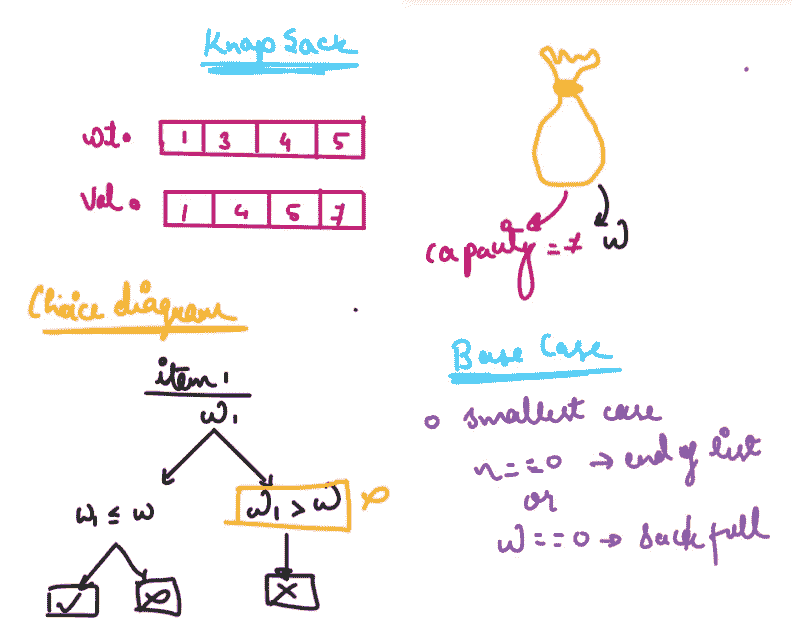 Knap Sack
wt. 1 3 4 5
Val. 1 4 5 7
capacity = 7 W
Choice diagram
item 1
w1
w1 ≤ w
w1 > w
Base Case
smallest case
n == 0 → end of list
or
w == 0 → sack full